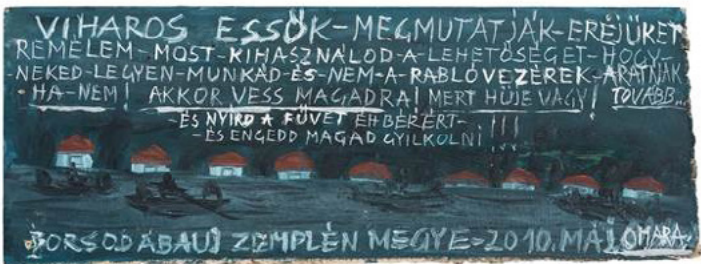 VIHAROS ESSŐK-MEGMUTATJÁK-EREJÜKET
REMÉLEM-MOST-KIHASZNÁLOD-A-LEHETŐSÉGET-HOGY-
-NEKED-LEGYEN-MUNKÁD-ÉS-NEM-A-RABLÓVEZÉREK-ARATNAK
HA-NEM! AKKOR VESS MAGADRA! MERT HÜJE VAGY! TOVÁBB...
-ÉS NYÍRD A FÜVET ÉHBÉRÉRT-
-ÉS ENGEDD MAGAD GYILKOLNI!!!
BORSOD ABAUJ ZEMPLÉN MEGYE=2010.
OMARA